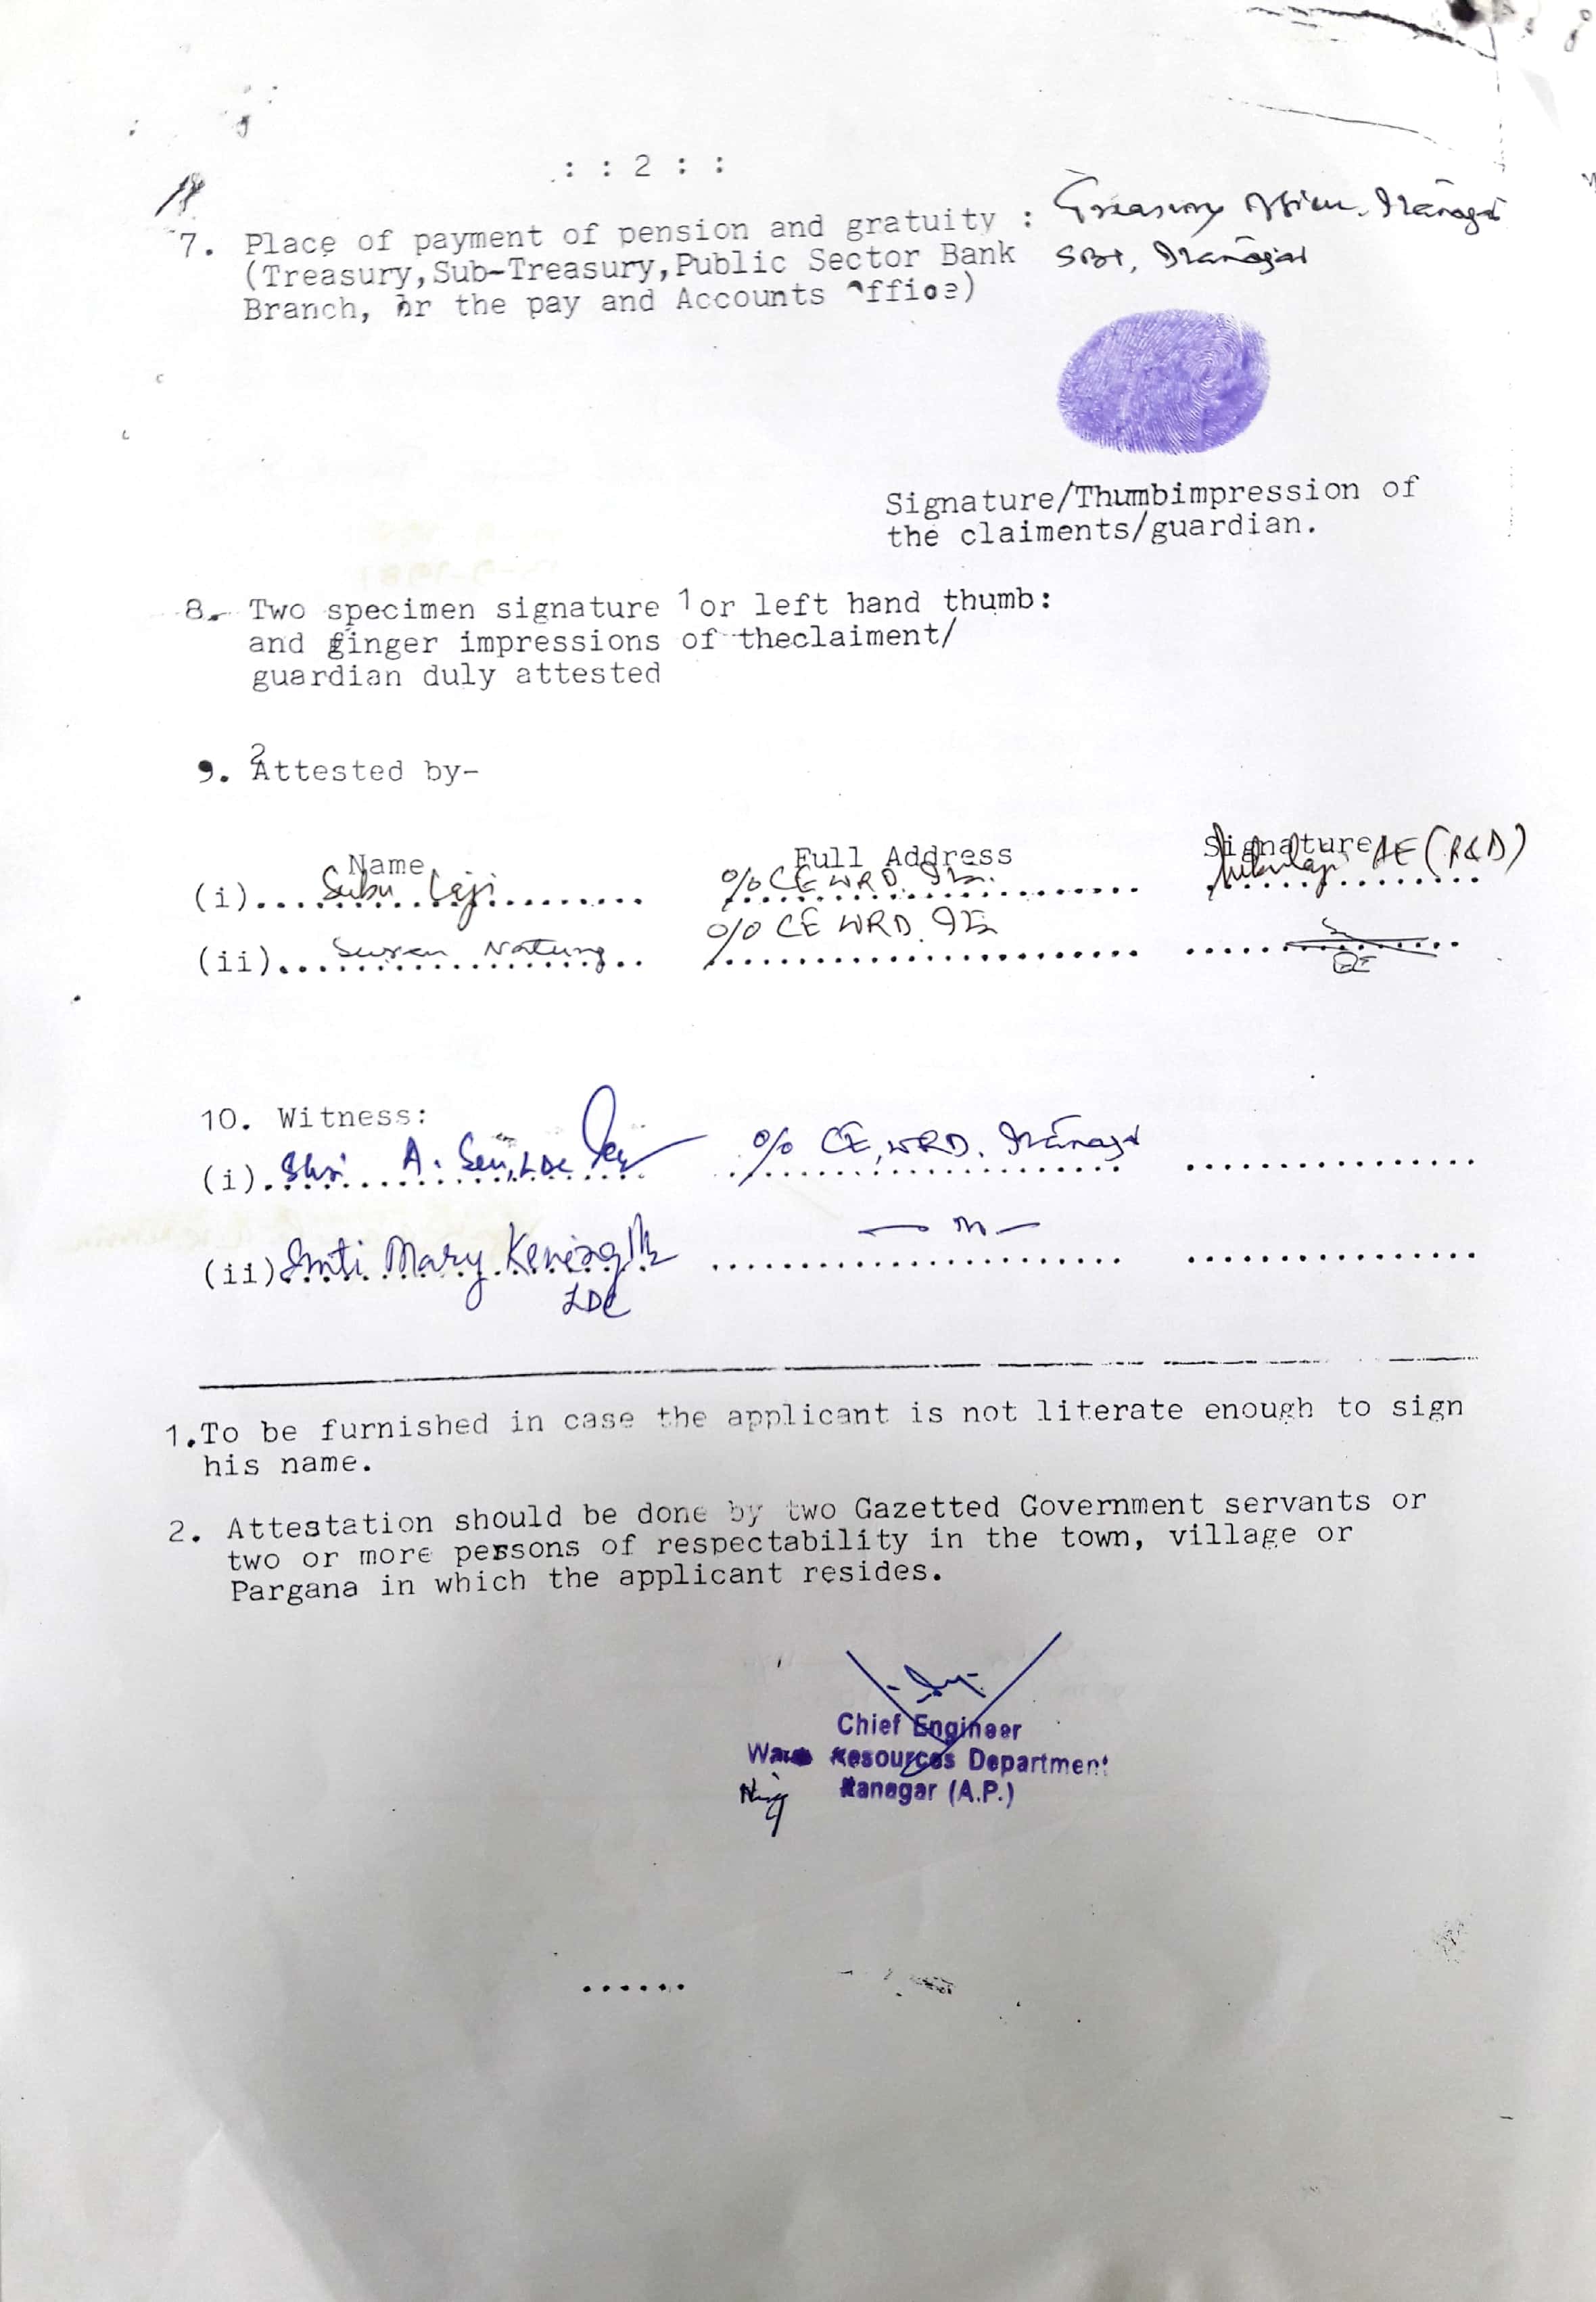 : : 2 : :
7. Place of payment of pension and gratuity : Treasury Office, Itanagar
(Treasury,Sub-Treasury,Public Sector Bank SBI, Itanagar
Branch, or the pay and Accounts Office)
Signature/Thumbimpression of
the claiments/guardian.
8. Two specimen signature 1or left hand thumb:
and ginger impressions of theclaiment/
guardian duly attested
2
9. Attested by-
Name Full Address Signature
(i) Subu Laji O/o CE WRD. AE (R&D)
(ii) Natung O/o CE WRD.
10. Witness:
(i) Shri A. Sen, LDC O/o CE, WRD. Itanagar
(ii) Smti Mary
LDC
1.To be furnished in case the applicant is not literate enough to sign
his name.
2. Attestation should be done by two Gazetted Government servants or
two or more persons of respectability in the town, village or
Pargana in which the applicant resides.
Chief Engineer
Resources Department
Itanagar (A.P.)
......